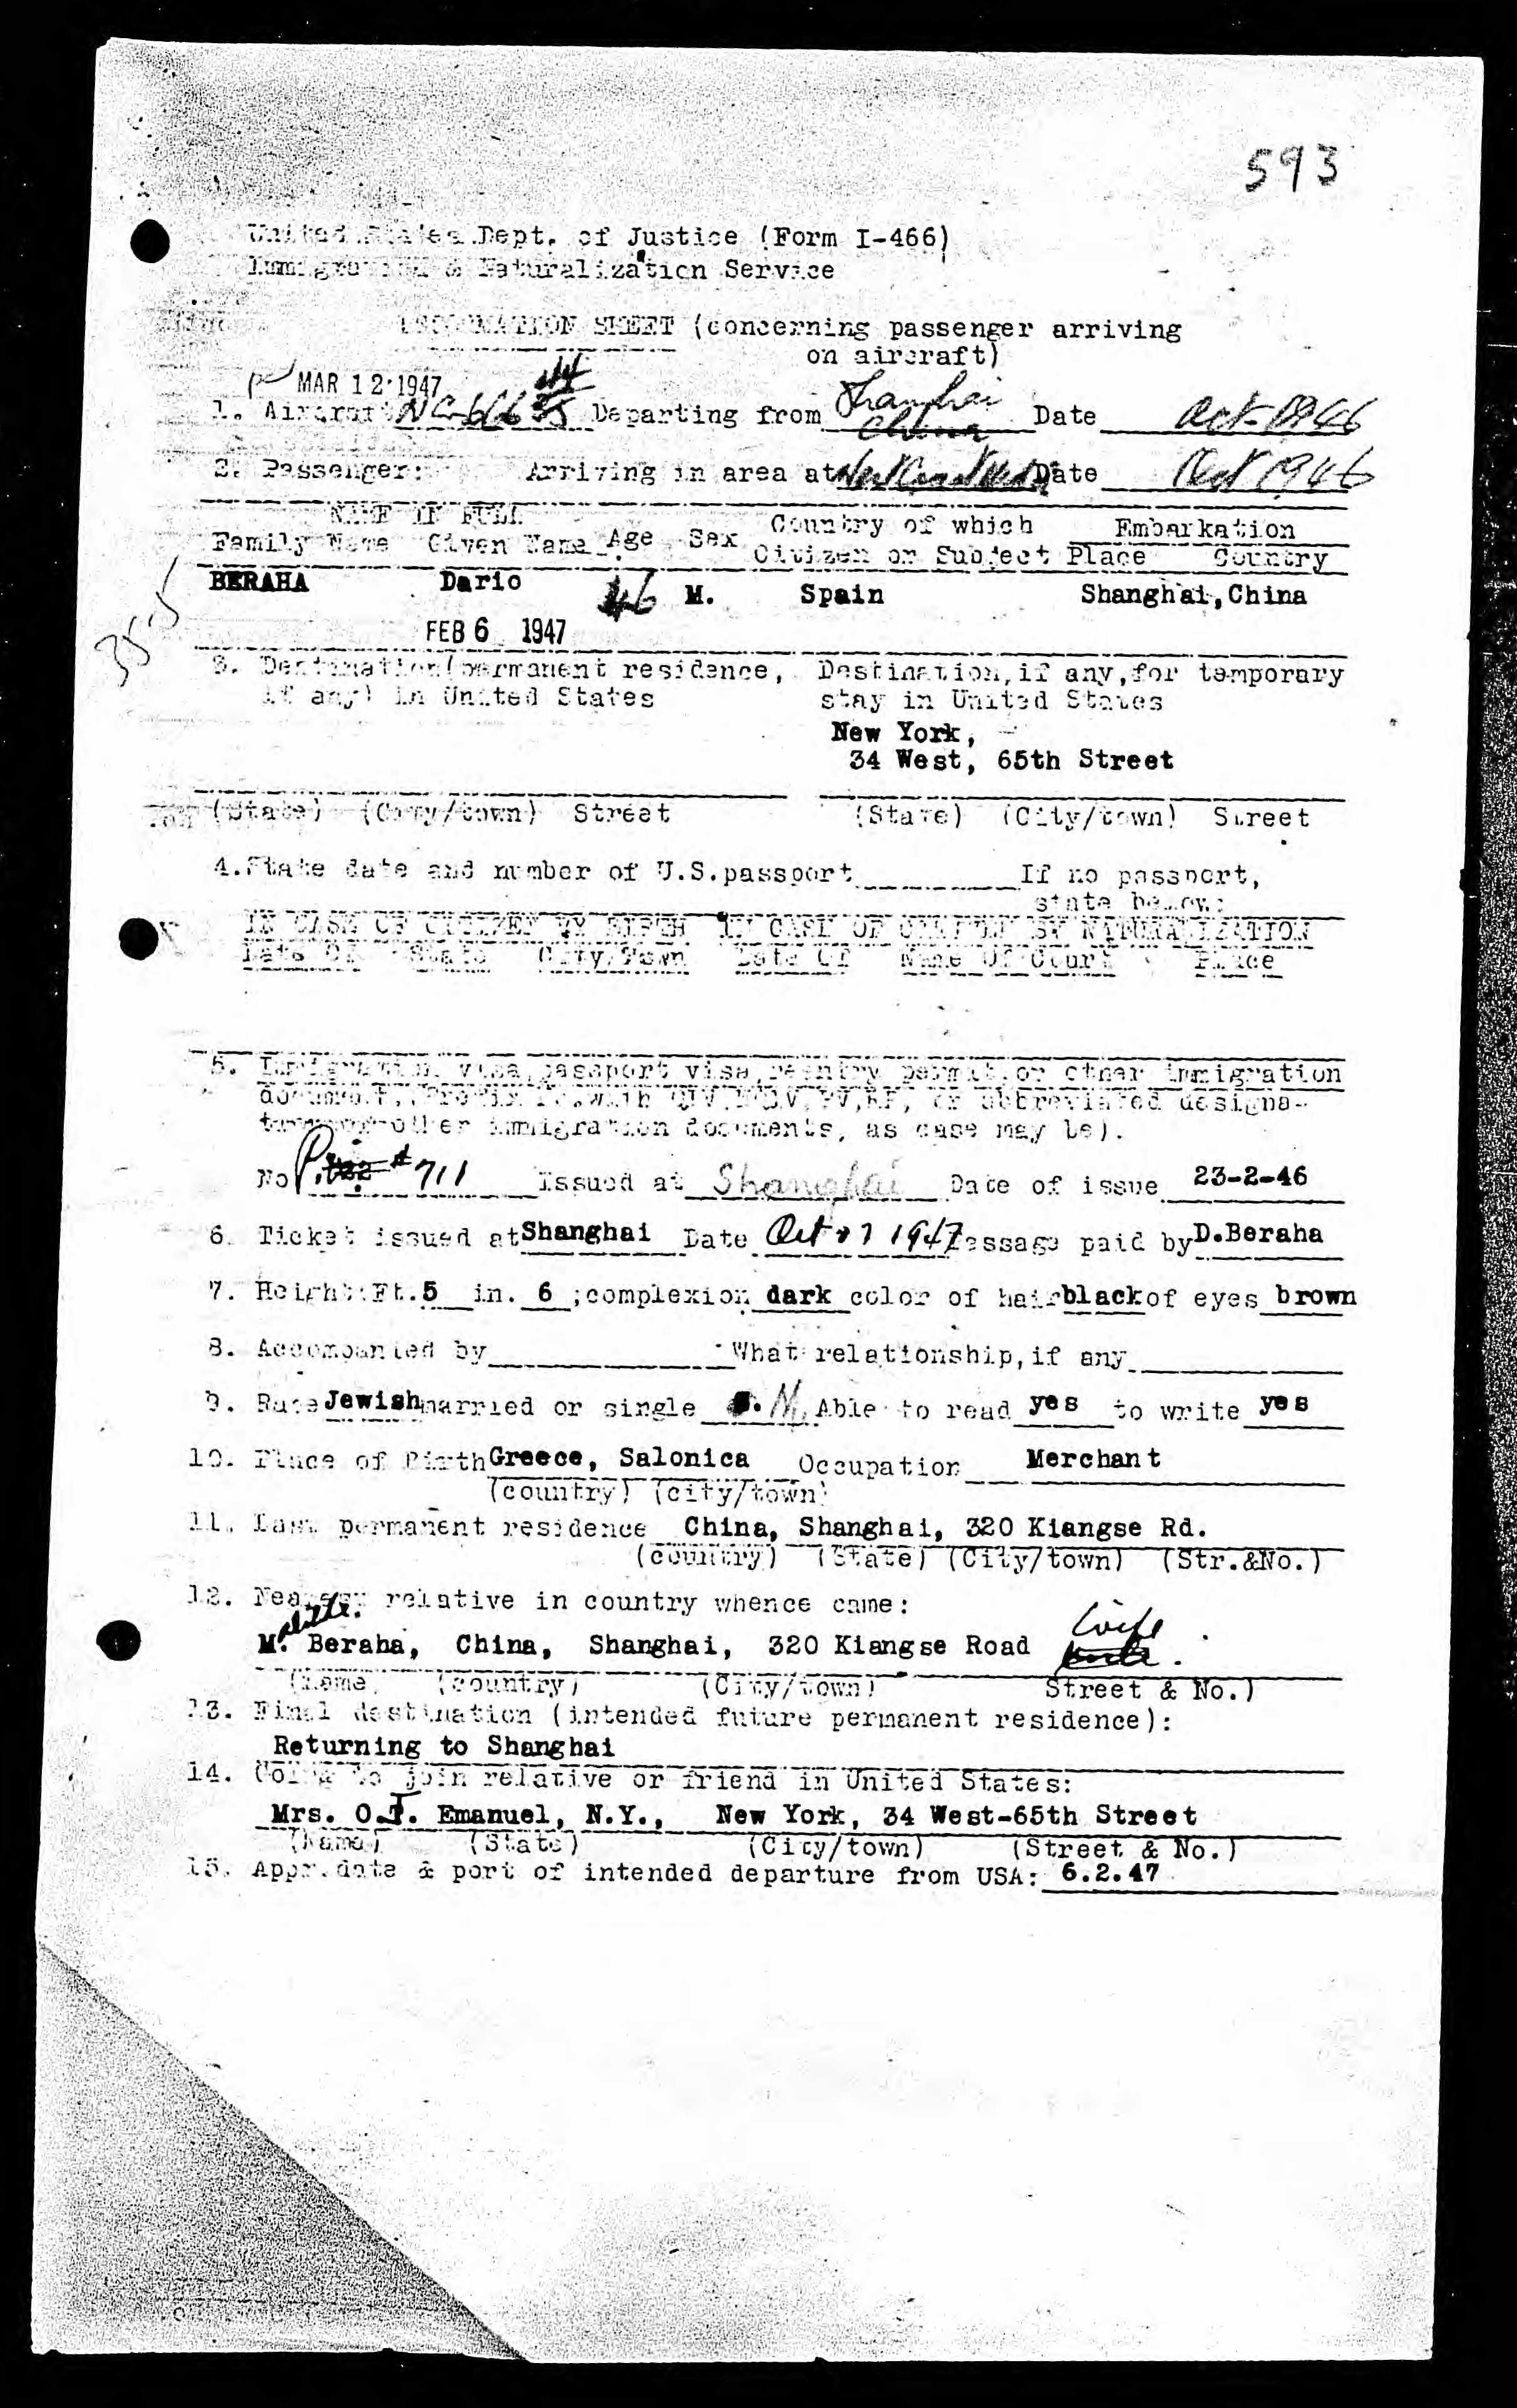 593
United States Dept. of Justice (Form I-466)
Immigration & Naturalization Service
INFORMATION SHEET (concerning passenger arriving
on aircraft)
MAR 12 1947
1. Aircraft Departing from Shanghai China Date Oct 1946
2. Passenger: Arriving in area at Date Oct 1946
NAME IN FULL Country of which Embarkation
Family Name Given Name Age Sex Citizen or Subject Place Country
BERAHA Dario 46 M. Spain Shanghai, China
FEB 6 1947
3. Destination (permanent residence, Destination, if any, for temporary
if any) in United States stay in United States
New York,
34 West, 65th Street
(State) (City/town) Street (State) (City/town) Street
4. State date and number of U.S. passport If no passport,
state below:
IN CASE OF CITIZEN BY BIRTH IN CASE OF CITIZEN BY NATURALIZATION
Date Of State City/Town Date Of Name Of Court Place
5. Immigration visa, passport visa, reentry permit, or other immigration
document, (Prefix No. with QIV, NQIV, PV, RP, or abbreviated designa-
tion of other immigration documents, as case may be).
No #711 Issued at Shanghai Date of issue 23-2-46
6. Ticket issued at Shanghai Date Oct 1947 Passage paid by D. Beraha
7. Height: Ft. 5 in. 6 ; complexion dark color of hair black of eyes brown
8. Accompanied by What relationship, if any
9. Race Jewish married or single M. Able to read yes to write yes
10. Place of Birth Greece, Salonica Occupation Merchant
(country) (city/town)
11. Last permanent residence China, Shanghai, 320 Kiangse Rd.
(country) (State) (City/town) (Str.&No.)
12. Nearest relative in country whence came:
M. Beraha, China, Shanghai, 320 Kiangse Road Wife
(Name) (country) (City/town) Street & No.)
13. Final destination (intended future permanent residence):
Returning to Shanghai
14. Going to join relative or friend in United States:
Mrs. O.J. Emanuel, N.Y., New York, 34 West-65th Street
(Name) (State) (City/town) (Street & No.)
15. Appr. date & port of intended departure from USA: 6.2.47